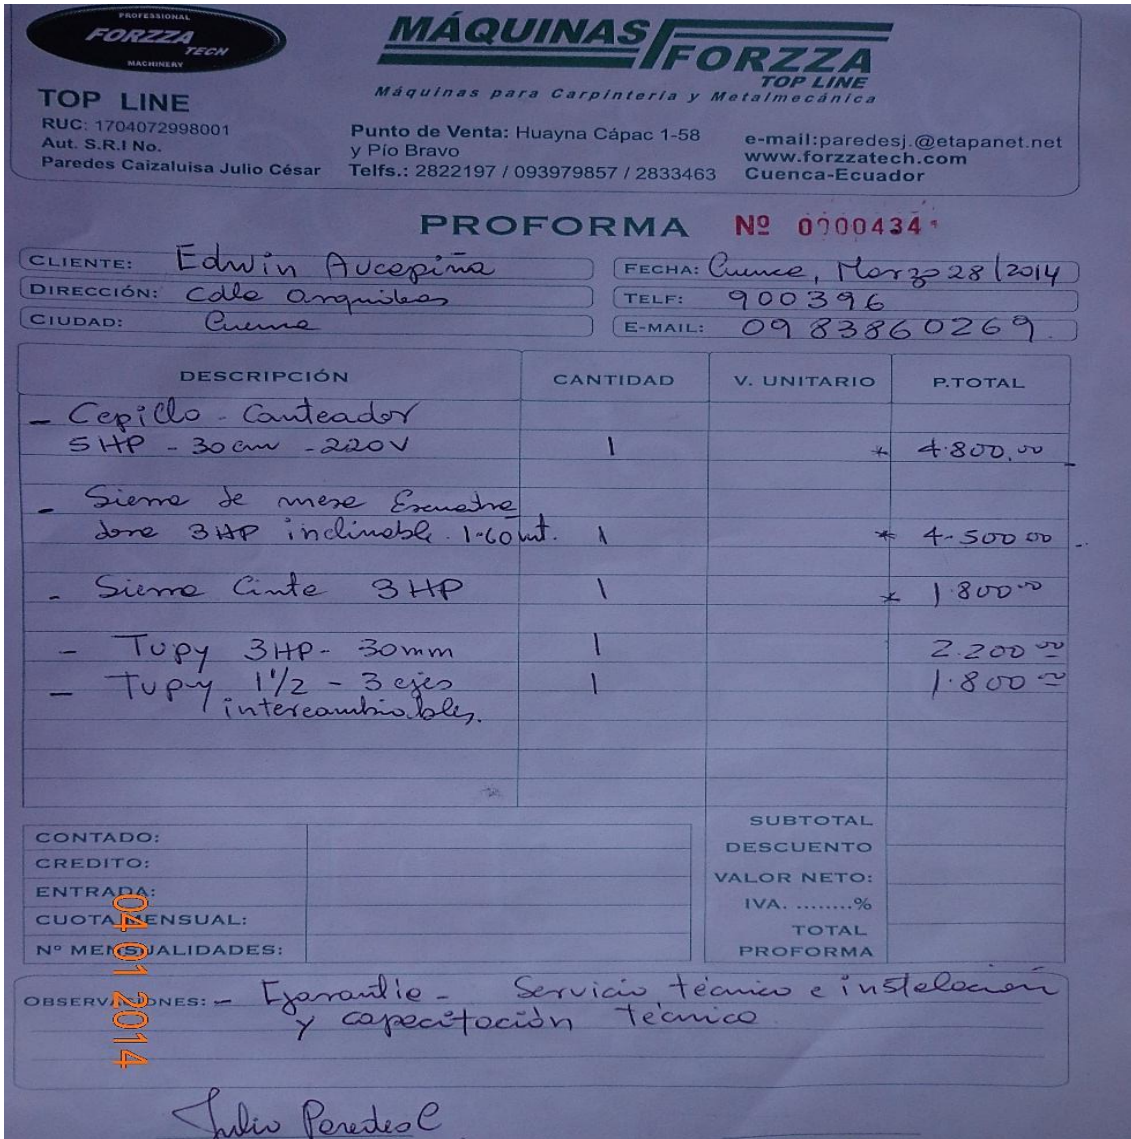 PROFESSIONAL
FORZZA
TECH
MACHINERY
MÁQUINAS
FORZZA
TOP LINE
Máquinas para Carpintería y Metalmecánica
TOP LINE
RUC: 1704072998001
Aut. S.R.I No.
Paredes Caizaluisa Julio César
Punto de Venta: Huayna Cápac 1-58
y Pío Bravo
Telfs.: 2822197 / 093979857 / 2833463
e-mail:paredesj.@etapanet.net
www.forzzatech.com
Cuenca-Ecuador
PROFORMA Nº 0000434
CLIENTE: Edwin Aucapiña
FECHA: Cuenca, Marzo 28/2014
DIRECCIÓN: Cdla
TELF: 900396
CIUDAD: Cuenca
E-MAIL: 0983860269.
DESCRIPCIÓN CANTIDAD V. UNITARIO P.TOTAL
- Cepillo - Canteador
5HP - 30cm - 220V 1 * 4.800,00
- Sierra de mesa Escuadra
dora 3HP inclinable. 1-60mt. 1 * 4.500 00
- Sierra Cinta 3HP 1 * 1.800 00
- Tupy 3HP - 30mm 1 2.200 00
- Tupy 1 1/2 - 3 ejes 1 1.800 00
intercambiables.
CONTADO:
CREDITO:
ENTRADA:
CUOTA MENSUAL:
Nº MENSUALIDADES:
SUBTOTAL
DESCUENTO
VALOR NETO:
IVA. ........%
TOTAL
PROFORMA
OBSERVACIONES: - Garantía - Servicio técnico e instalación
y capacitación técnica
Julio Paredes C
04 01 2014